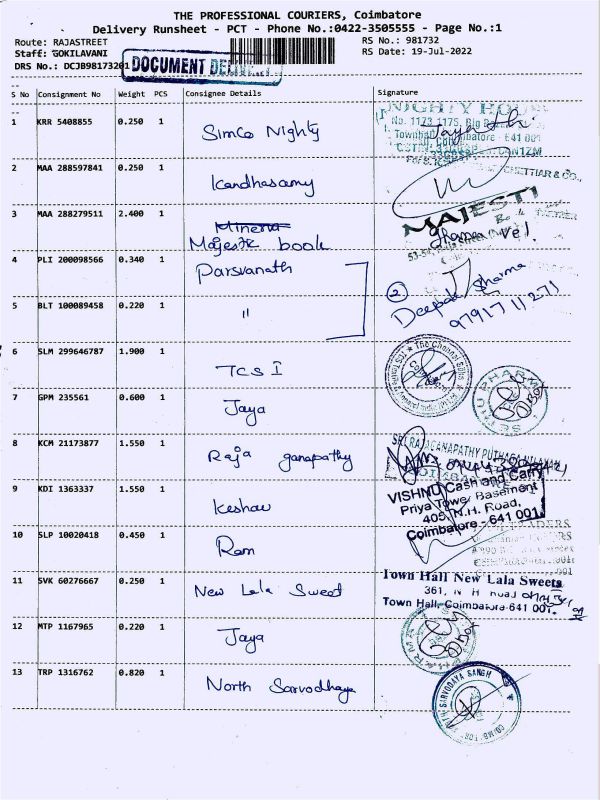 THE PROFESSIONAL COURIERS, Coimbatore
Delivery Runsheet - PCT - Phone No.:0422-3505555 - Page No.:1
Route: RAJASTREET RS No.: 981732
Staff: GOKILAVANI RS Date: 19-Jul-2022
DRS No.: DCJB98173201 DOCUMENT DELIVERY
S No Consignment No Weight PCS Consignee Details Signature
1 KRR 5408855 0.250 1 Simco Nighty
NIGHTY HOUSE
No. 1173, 1175, Big
Townhall, Coimbatore - 641 001
2 MAA 288597841 0.250 1 Kandhasamy
CHETTIAR & CO.,
3 MAA 288279511 2.400 1 Minerva
Majestic book
MAJESTI
4 PLI 200098566 0.340 1 Parsvanath
2 Deepak Sharma
97917 11271
5 BLT 100089458 0.220 1 "
6 SLM 299646787 1.900 1 TCS I
The Chennai Silks
7 GPM 235561 0.600 1 Jaya
PHARMA
8 KCM 21173877 1.550 1 Raja ganapathy
SRI RAJAGANAPATHY PUTHAGA NILAYAM
9 KDI 1363337 1.550 1 Keshav
VISHNU Cash and Carry
Priya Tower Basement
405, N.H. Road,
Coimbatore - 641 001
10 SLP 10020418 0.450 1 Ram
TRADERS
11 SVK 60276667 0.250 1 New Lala Sweet
Town Hall New Lala Sweets
361, N H Road
Town Hall, Coimbatore-641 001.
12 MTP 1167965 0.220 1 Jaya
13 TRP 1316762 0.820 1 North Sarvodhaya
SARVODAYA SANGH